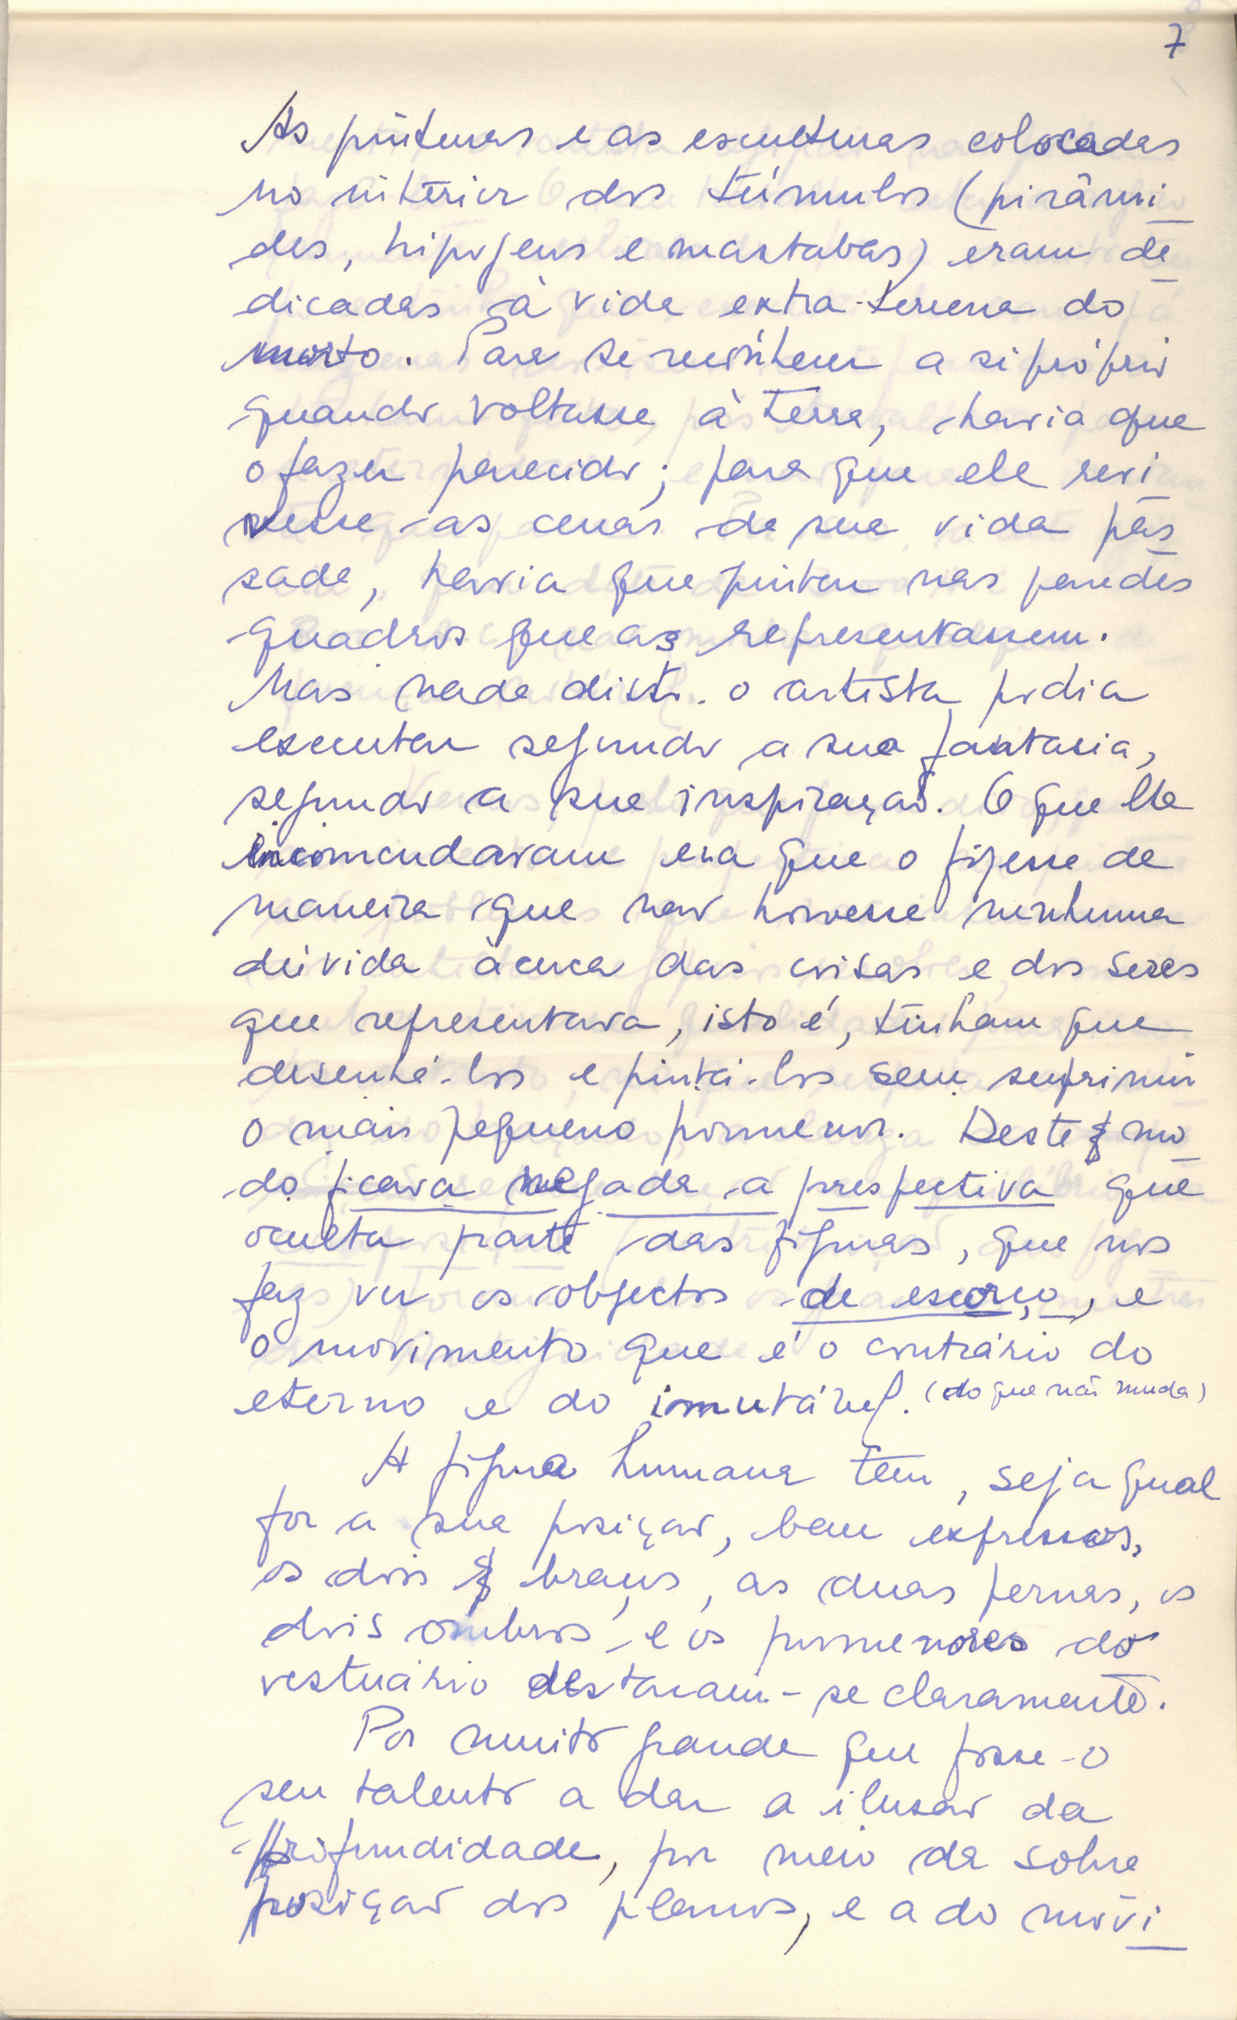 7
As pinturas e as esculturas colocadas
no interior dos túmulos (pirâmi
des, hipogeus e mastabas) eram de
dicadas à vida extra-terrena do
morto. Para se reconhecer a si próprio
quando voltasse à terra, havia que
o fazer parecido; para que ele revi
vesse as cenas da sua vida pas
sada, havia que pintar nas paredes
quadros que as representassem.
Mas nada disto o artista podia
executar segundo a sua fantasia,
segundo a sua inspiração. O que lhe
encomendavam era que o fizesse de
maneira que não houvesse nenhuma
dúvida àcerca das coisas e dos seres
que representava, isto é, tinham que
desenhá-los e pintá-los sem suprimir
o mais pequeno pormenor. Deste mo
do ficava negada a prespectiva que
oculta parte das figuras, que nos
faz ver os objectos de escorço, e
o movimento que é o contrário do
eterno e do imutável. (do que não muda)
A figura humana tem, seja qual
for a sua posição, bem expressos,
os dois braços, as duas pernas, os
dois ombros, e os pormenores do
vestuário destacam-se claramente.
Por muito grande que fosse o
seu talento a dar a ilusão da
profundidade, por meio da sobre
posição dos planos, e a do movi